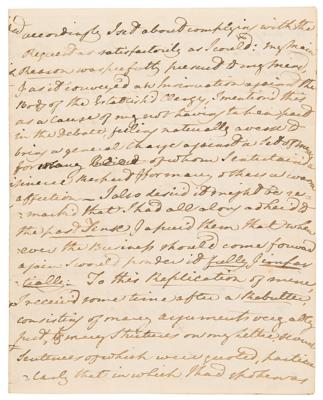 accordingly I set about complying with the
Request as satisfactorily as I could: my main
Reason was perfectly
as it conveyed an Insinuation against the
Body of the Establish'd Clergy, I mentioned this
as a cause of my not having taken a part
in the debate, feeling naturally averse to
bring a general Charge against a Set of men,
for many of whom I entertained a
sincere Respect & for many others a warm
affection — I also desired it might be re-
marked that I had all along adher'd to
the past Tense I assured them that when
ever the Business should come forward
again I would ponder it fully & impar-
tially. — To this Replication of mine
I received some time after a Rebutter,
consisting of many arguments very ably
put, & many Strictures on my Letter, several
Sentences of which were quoted, particu-
larly that in which I had spoken as